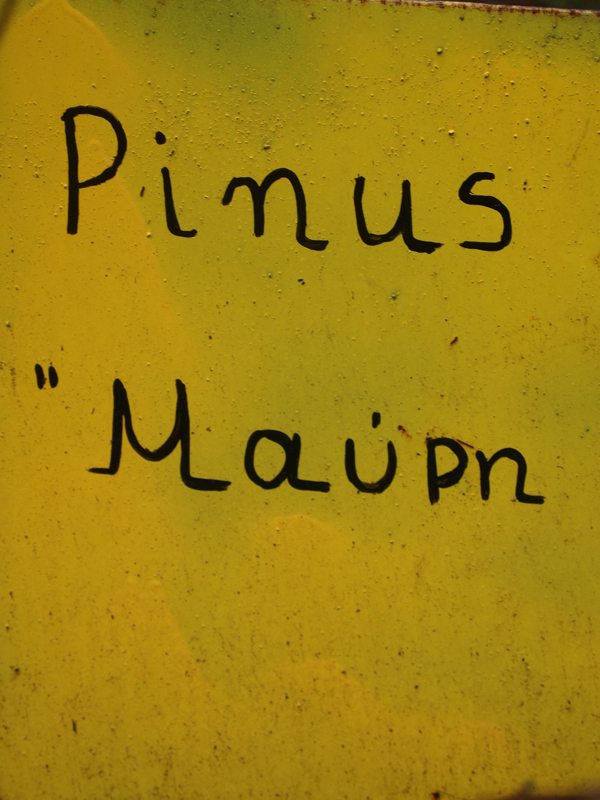 Pinus
"Μαύρη